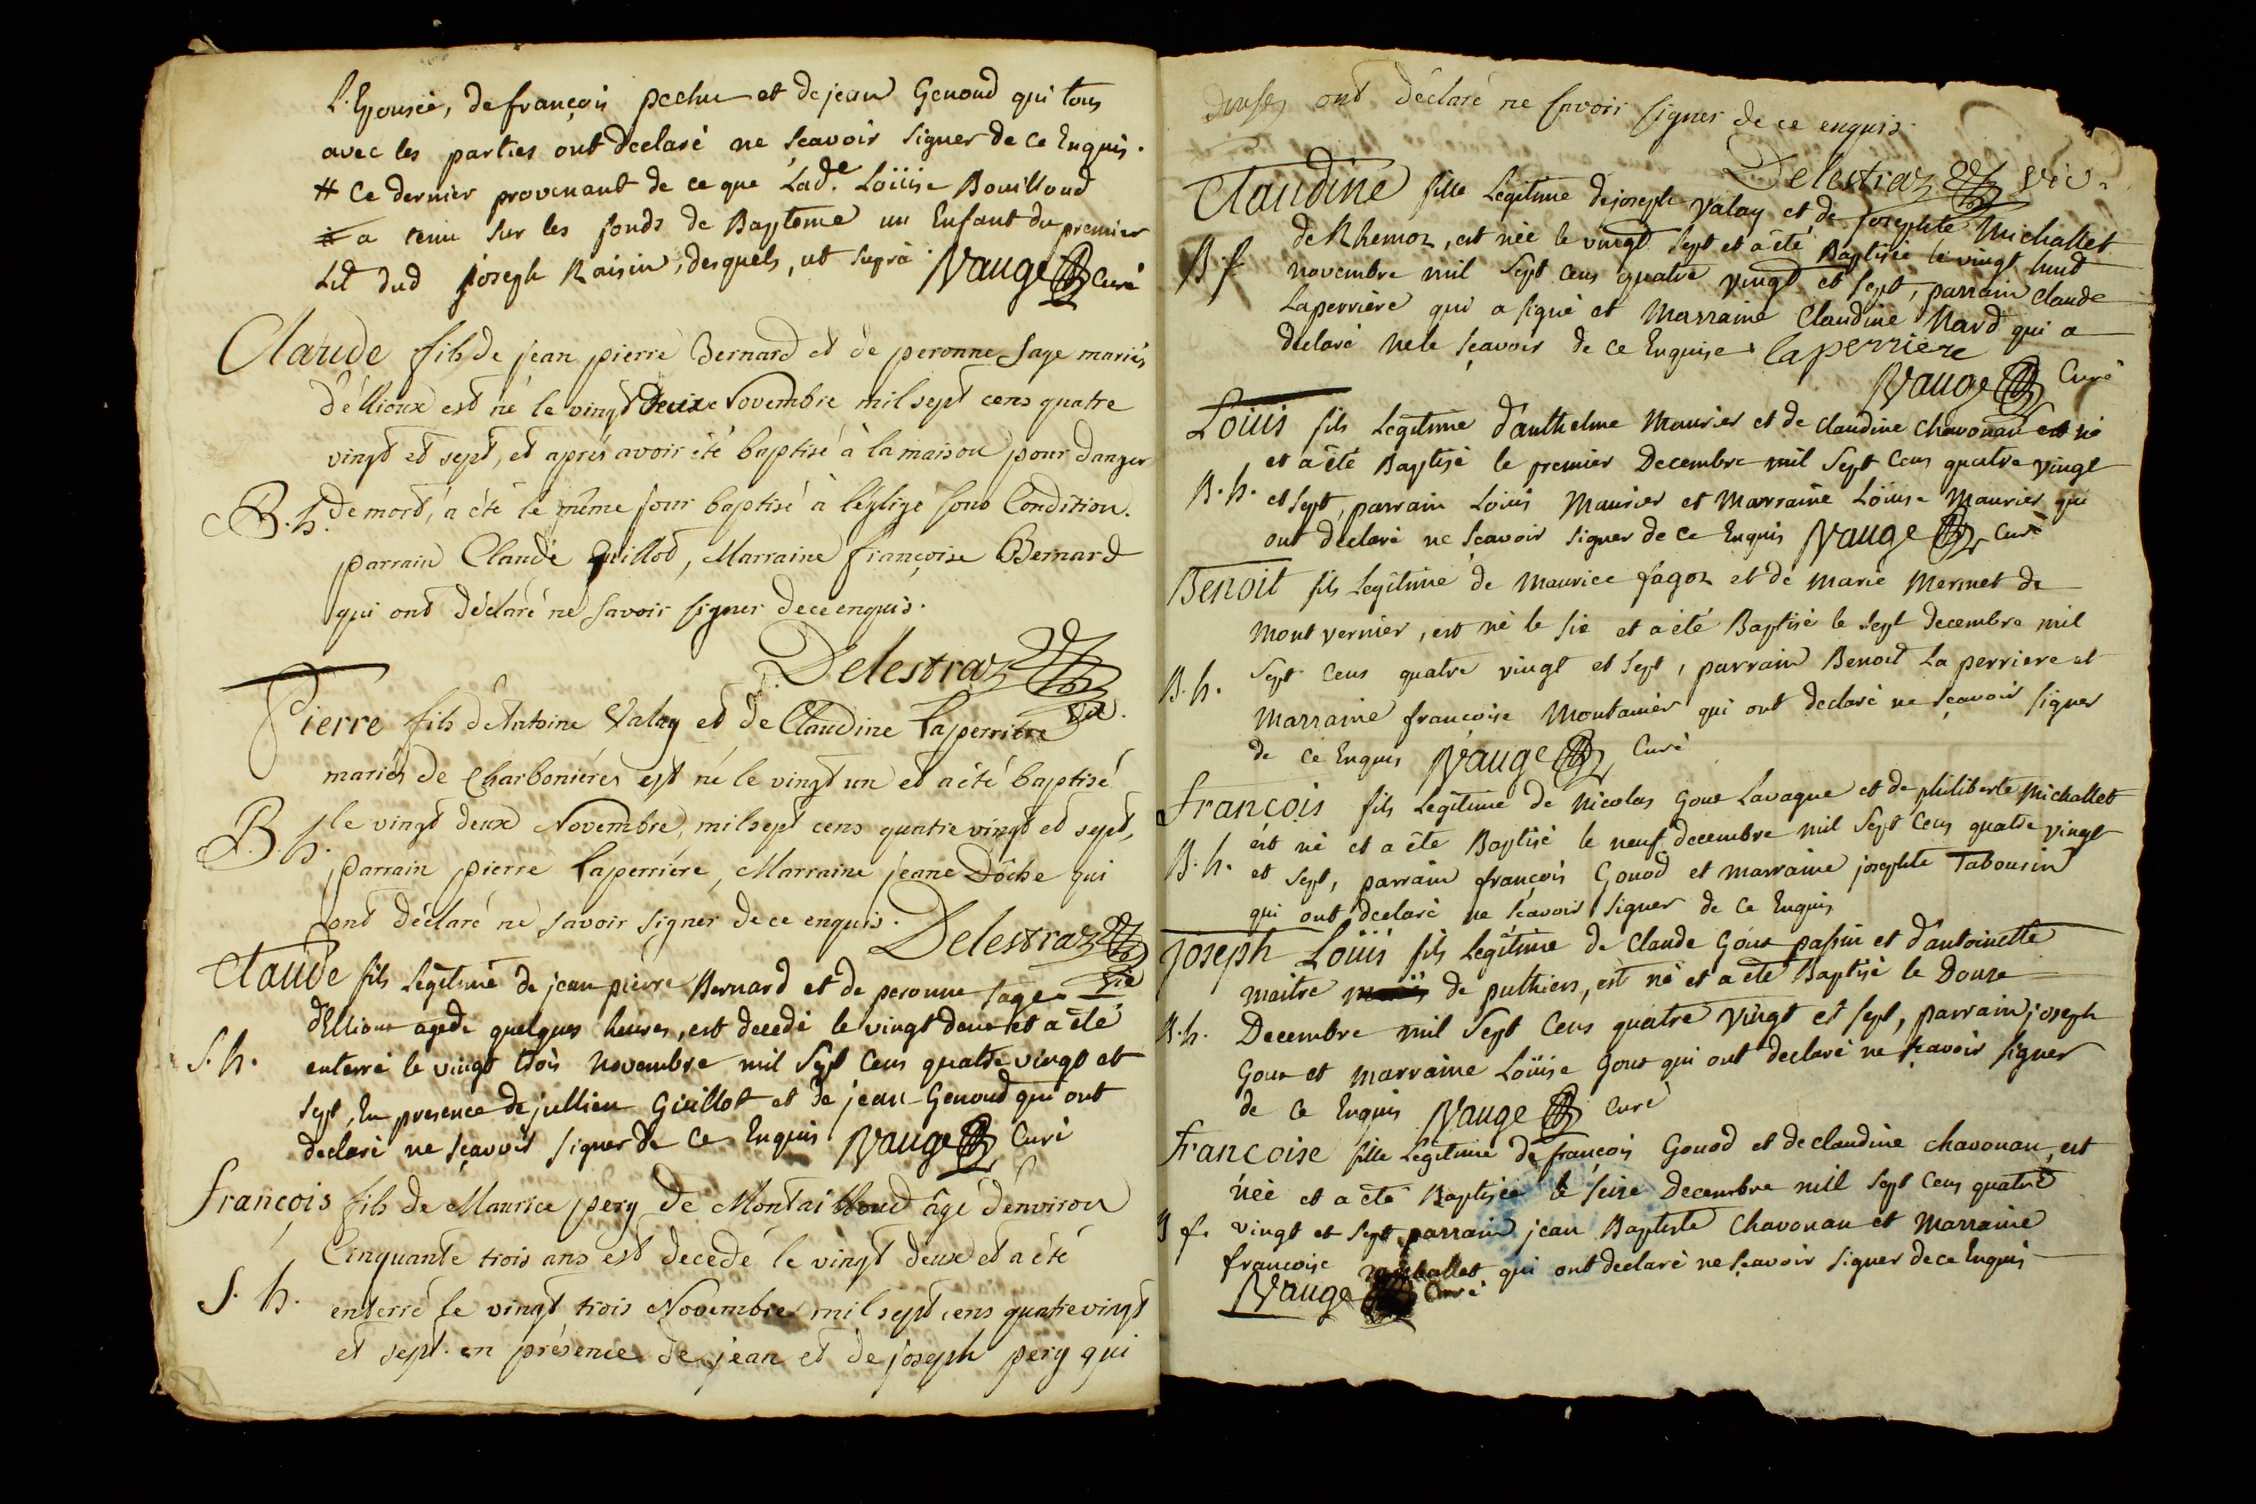 L'Epousée, de françois pechu et de jean Genoud qui tous
avec les parties ont declaré ne sçavoir signer de ce Enquis.
# ce dernier provenant de ce que Lade. Loüise Bouilloud
a tenu sur les fonds de Bapteme un Enfant du premier
Lit dud joseph Raisin, desquels, ut suprà. Vauge Curé
Claude fils de jean pierre Bernard et de peronne Sage mariés
d'Ellioux est né le vingt Deux Novembre mil sept cens quatre
vingt et sept, et aprés avoir été baptisé à la maison pour danger
B. h. de mort, a été le même jour baptisé à l'église sous Condition.
parrain Claude Guillot, Marraine françoise Bernard
qui ont déclaré ne savoir signer de ce enquis.
Delestraz
vic.
Pierre fils d'Antoine Valay et de Claudine Laperrière
mariés de Charboniéres est né le vingt un et a été baptisé
B. h. le vingt deux Novembre, mil sept cens quatre vingt et sept,
parrain pierre Laperriére, Marraine jeane Dôche qui
ont déclaré ne savoir signer de ce enquis.
Delestraz
vic
Claude fils Légitime de jean pierre Bernard et de peronne sage
d'Ellioux agé de quelques heures, est decedé le vingt deux et a été
S. h. enterré le vingt trois novembre mil Sept Cens quatre vingt et
sept, En presence de jullien Guillot et de jean Genoud qui ont
declaré ne sçavoir signer de Ce Enquis Vauge Curé
françois fils de Maurice pery de Montailloud âgé d'environ
Cinquante trois ans est decedé le vingt deux et a été
S. h. enterré le vingt trois Novembre mil sept cens quatre vingt
et sept. en présence de jean et de joseph pery qui
ont déclaré ne savoir signer de ce enquis.
Delestraz vic.
Claudine fille Légitime de joseph Valay et de josephte Michallet
de Rhemoz, est née le vingt sept et a été Baptisée le vingt huit
B. f. novembre mil sept cens quatre vingt et sept, parrain Claude
Laperrière qui a signé et Marraine Claudine Nard qui a
declaré ne le sçavoir de Ce Enquise. laperriere
Vauge Curé
Loüis fils Légitime d'anthelme Maurier et de Claudine Chavonau est né
et a été Baptisé le premier Decembre mil Sept Cens quatre vingt
B. h. et sept, parrain Loüis Maurier et Marraine Loüise Maurier qui
ont declaré ne sçavoir signer de Ce Enquis Vauge Curé
Benoit fils Legitime de Maurice fagoz et de Marie Mermet de
Mont vernier, est né le six et a été Baptisé le Sept decembre mil
B. h. Sept Cens quatre vingt et sept, parrain Benoit Laperriere et
Marraine françoise Montanier qui ont declaré ne sçavoir signer
de Ce Enquis Vauge Curé
françois fils Legitime de Nicolas Goux Lavague et de philiberte Michallet
est né et a été Baptisé le neuf decembre mil Sept Cens quatre vingt
B. h. et sept, parrain françois Gonod et marraine josephte Tabourin
qui ont declaré ne sçavoir signer de Ce Enquis
joseph Loüis fils Legitime de Claude Goux passin et d'antoinette
maitre de puthiers, est né et a été Baptisé le Douze
B. h. Decembre mil Sept Cens quatre vingt et sept, parrain joseph
Goux et marraine Loüise Goux qui ont declaré ne sçavoir signer
de Ce Enquis Vauge Curé
françoise fille Legitime de françois Gonod et de claudine Chavonau, est
née et a été Baptisée le seize Decembre mill Sept Cens quatre
B f. vingt et sept, parrain jean Baptiste Chavonau et Marraine
françoise qui ont declaré ne sçavoir signer de ce Enquis
Vauge Curé